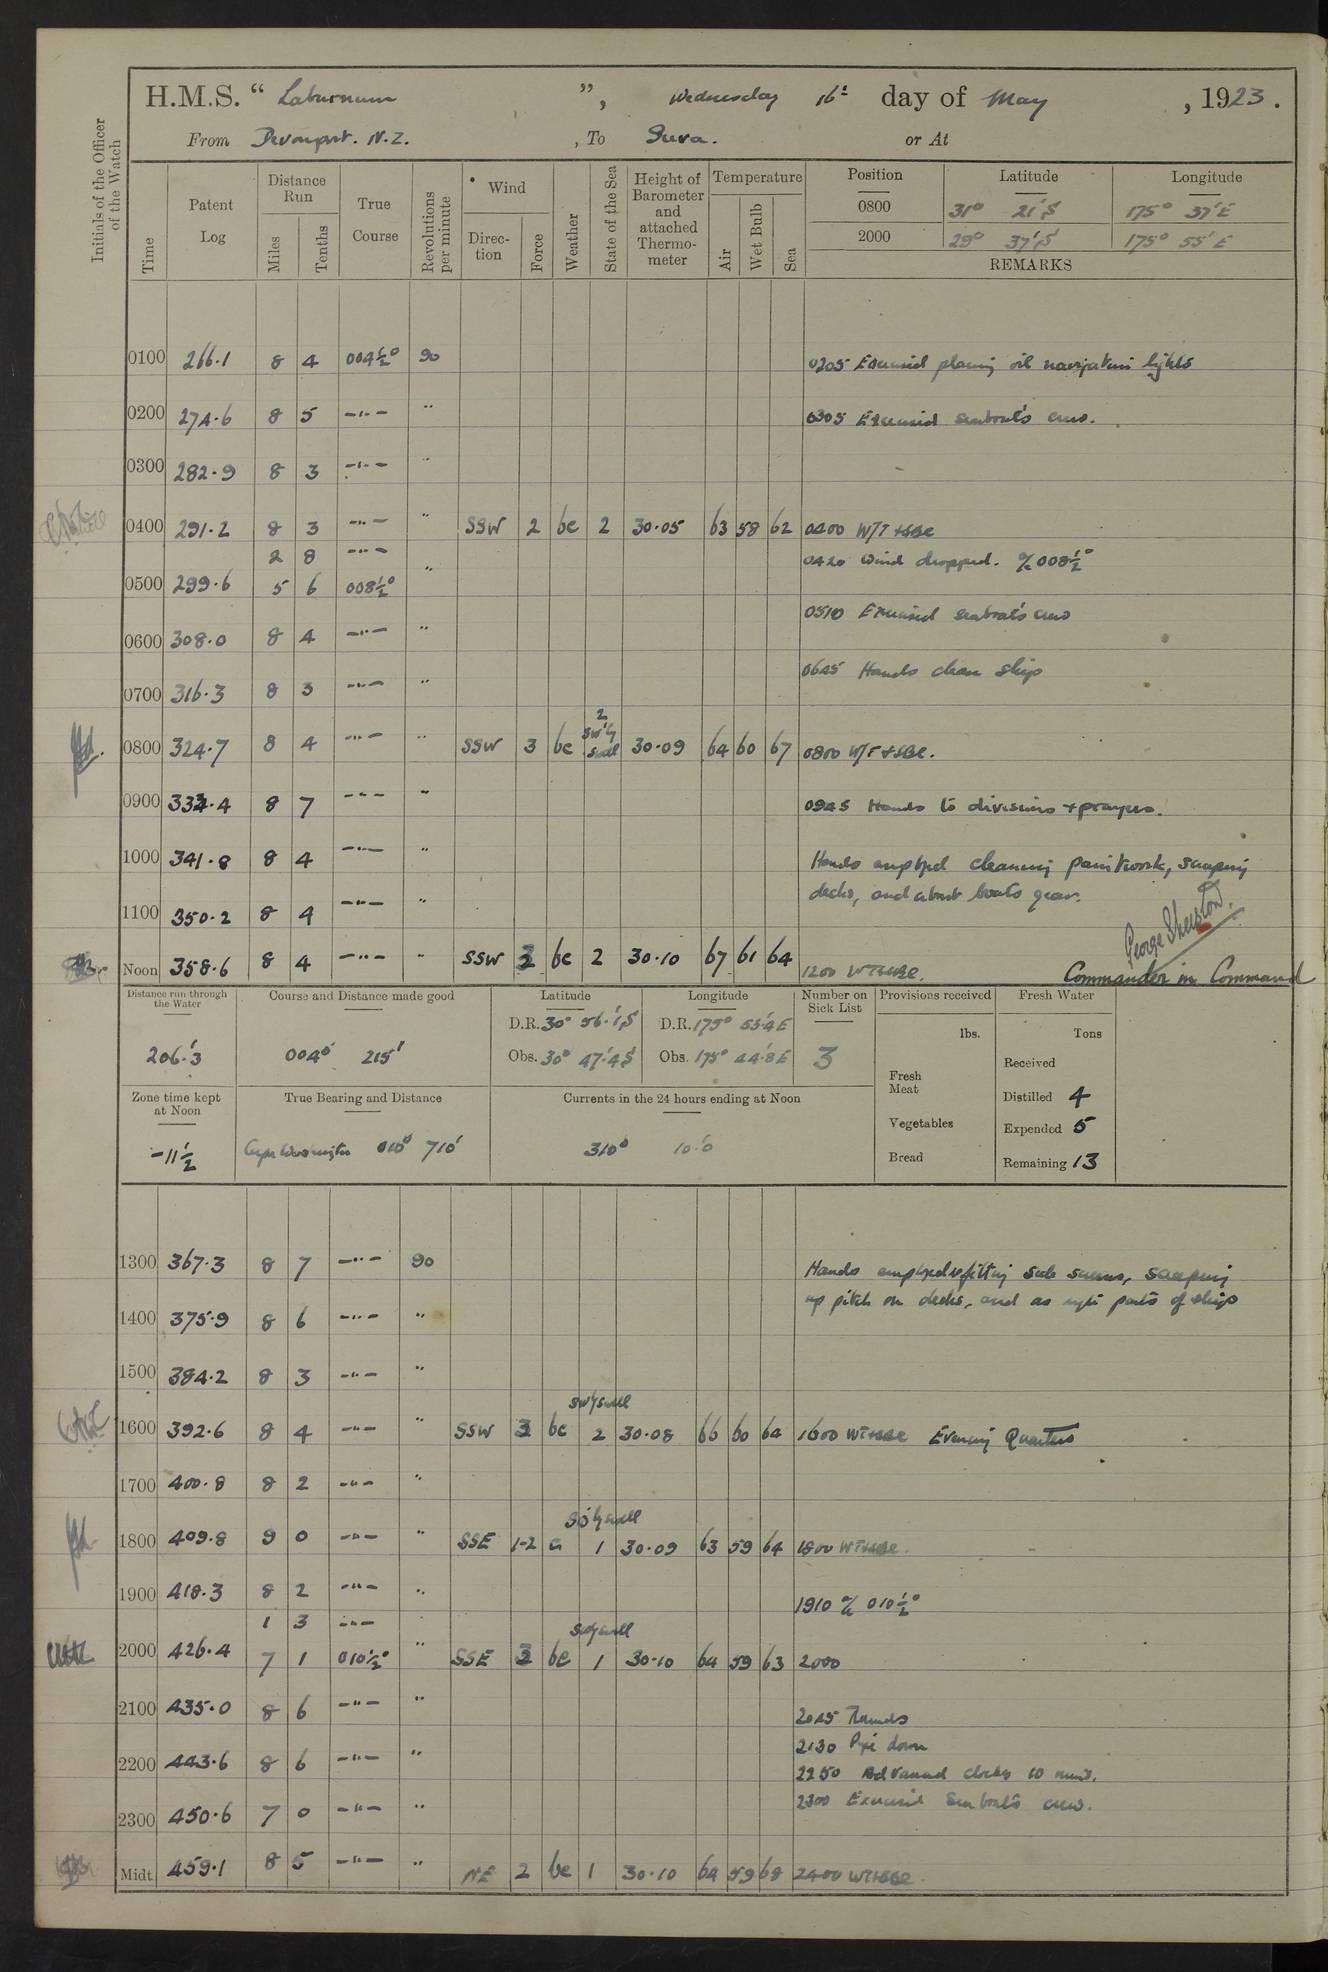 H.M.S. “ Laburnum ”, Wednesday 16th day of May , 1923.
From Devonport. N.Z. , To Suva. or At
Initials of the Officer of the Watch
Time Patent Log Distance Run Miles Tenths True Course Revolutions per minute Wind Direc-tion Force Weather State of the Sea Height of Barometer and attached Thermo-meter Temperature Air Wet Bulb Sea
Position Latitude Longitude
0800 31° 21'S 175° 37'E
2000 29° 37'S 175° 55'E
REMARKS
0100 266.1 8 4 004½° 90 0205 Exercised placing oil navigation lights
0200 274.6 8 5 —"— " 0305 Exercised seaboat's crew.
0300 282.9 8 3 —"— "
0400 291.2 8 3 —"— " SSW 2 bc 2 30.05 63 58 62 0400 W/T & SBE
2 8 —"— 0420 Wind dropped. a/c 008½°
0500 299.6 5 6 008½° "
0510 Exercised seaboat's crew
0600 308.0 8 4 —"— "
0645 Hands clean ship
0700 316.3 8 3 —"— "
0800 324.7 8 4 —"— " SSW 3 bc 2 SW'ly Swell 30.09 64 60 67 0800 W/T & SBE.
0900 333.4 8 7 —"— " 0945 Hands to divisions + prayers.
1000 341.8 8 4 —"— " Hands employed cleaning paintwork, scraping
decks, and about boats gear.
1100 350.2 8 4 —"— "
George Sherston.
Noon 358.6 8 4 —"— " SSW 2 bc 2 30.10 67 61 64 1200 WT & SBE.
Commander in Command
Distance run through the Water Course and Distance made good Latitude Longitude Number on Sick List Provisions received Fresh Water
D.R. 30° 56.1'S D.R. 175° 53.4'E lbs. Tons
206.3' 004° 215' Obs. 30° 47.4'S Obs. 175° 44.8'E 3
Fresh Meat Received
Zone time kept at Noon True Bearing and Distance Currents in the 24 hours ending at Noon Distilled 4
Vegetables Expended 5
-11½ Cape Washington 010° 710' 310° 10.0' Bread Remaining 13
1300 367.3 8 7 —"— 90 Hands employed refitting side screens, scraping
up pitch on decks, and as reqte parts of ship
1400 375.9 8 6 —"— "
1500 384.2 8 3 —"— "
SW'ly swell
1600 392.6 8 4 —"— " SSW 3 bc 2 30.08 66 60 64 1600 WT & SBE Evening Quarters
1700 400.8 8 2 —"— "
S'ly swell
1800 409.8 9 0 —"— " SSE 1-2 c 1 30.09 63 59 64 1800 WT & SBE.
1900 418.3 8 2 —"— " 1910 a/c 010½°
1 3 —"—
swell
2000 426.4 7 1 010½° " SSE 2 bc 1 30.10 64 59 63 2000
2100 435.0 8 6 —"— " 2045 Rounds
2130 Pipe down
2200 443.6 8 6 —"— " 2250 Advanced clocks 10 mins.
2300 Exercised Seaboat's crew.
2300 450.6 7 0 —"— "
Midt. 459.1 8 5 —"— " NE 2 bc 1 30.10 64 59 68 2400 WT & SBE.